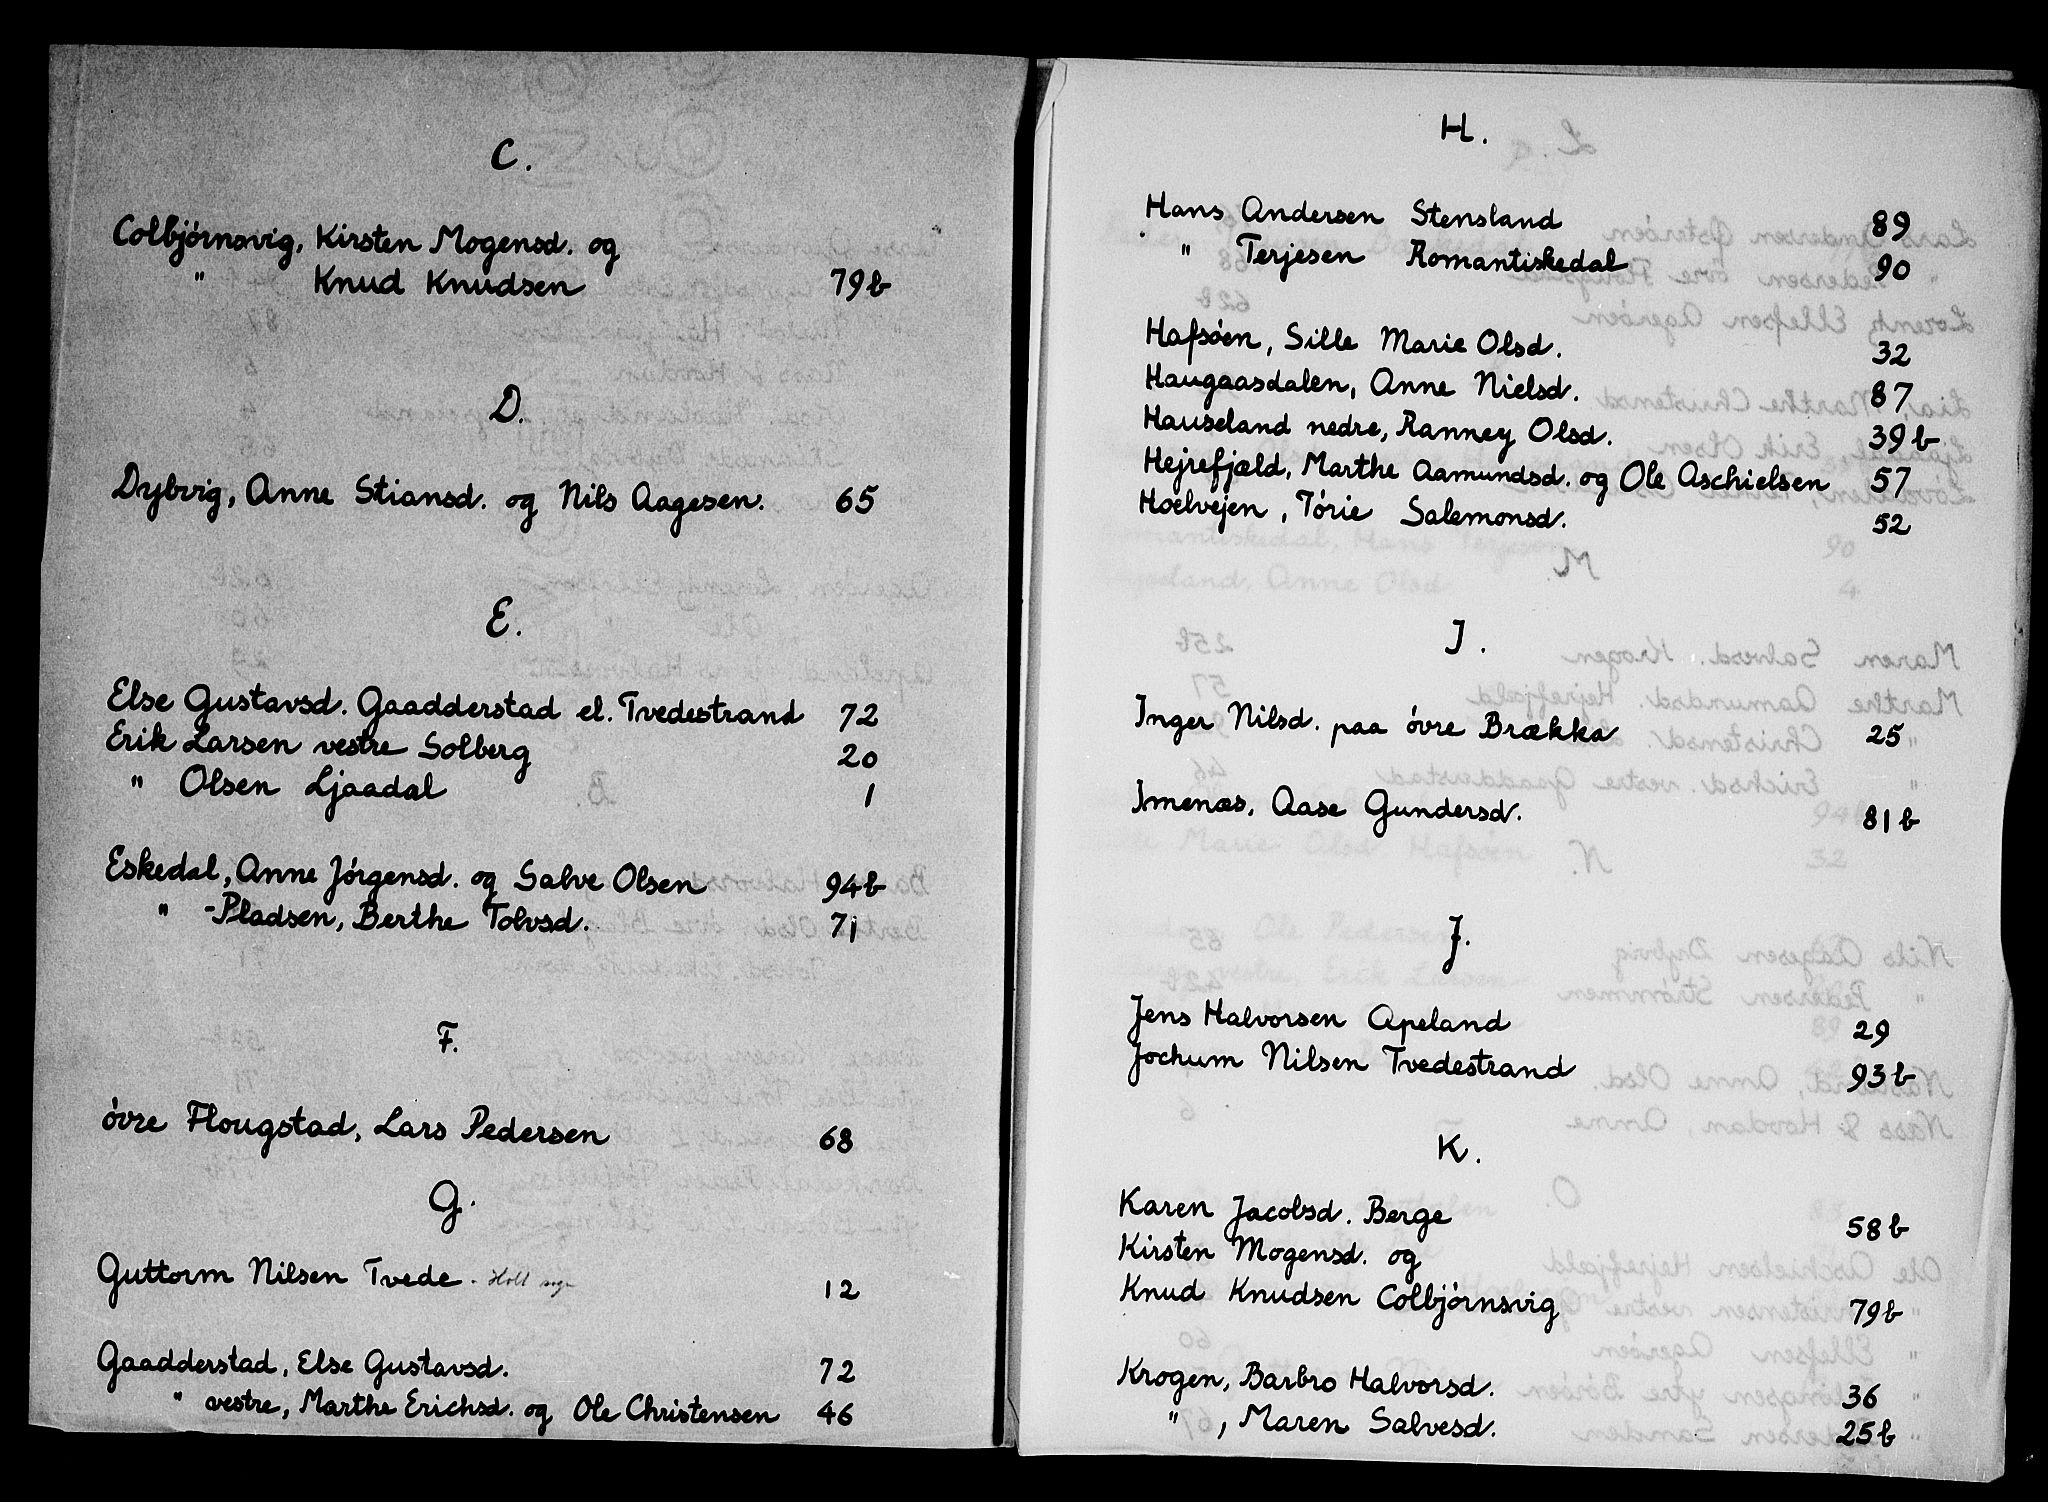 C.
Colbjørnsvig, Kirsten Mogensd. og
" Knud Knudsen 79b
D.
Dybvig, Anne Stiansd. og Nils Aagesen. 65
E.
Else Gustavsd. Gaadderstad el. Tvedestrand 72
Erik Larsen vestre Solberg 20
" Olsen Ljaadal 1
Eskedal, Anne Jörgensd. og Salve Olsen 94b
" -Pladsen, Berthe Tolvsd. 71
F.
övre Flougstad, Lars Pedersen 68
G.
Guttorm Nilsen Tvede. Holt 12
Gaadderstad, Else Gustavsd. 72
" vestre, Marthe Erichsd. og Ole Christensen 46
H.
Hans Andersen Stensland 89
" Terjesen Romantiskedal 90
Hafsöen, Sille Marie Olsd. 32
Haugaasdalen, Anne Nielsd. 87
Hauseland nedre, Ranney Olsd. 39b
Hejrefjæld, Marthe Aamundsd. og Ole Aschielsen 57
Hoelvejen, Törie Salemonsd. 52
I.
Inger Nilsd. paa övre Brækka 25
Imenæs, Aase Gundersd. 81b
J.
Jens Halvorsen Apeland 29
Jochum Nilsen Tvedestrand 93b
K.
Karen Jacobsd. Berge 58b
Kirsten Mogensd. og
Knud Knudsen Colbjörnsvig 79b
Krogen, Barbro Halvorsd. 36
" , Maren Salvesd. 25b